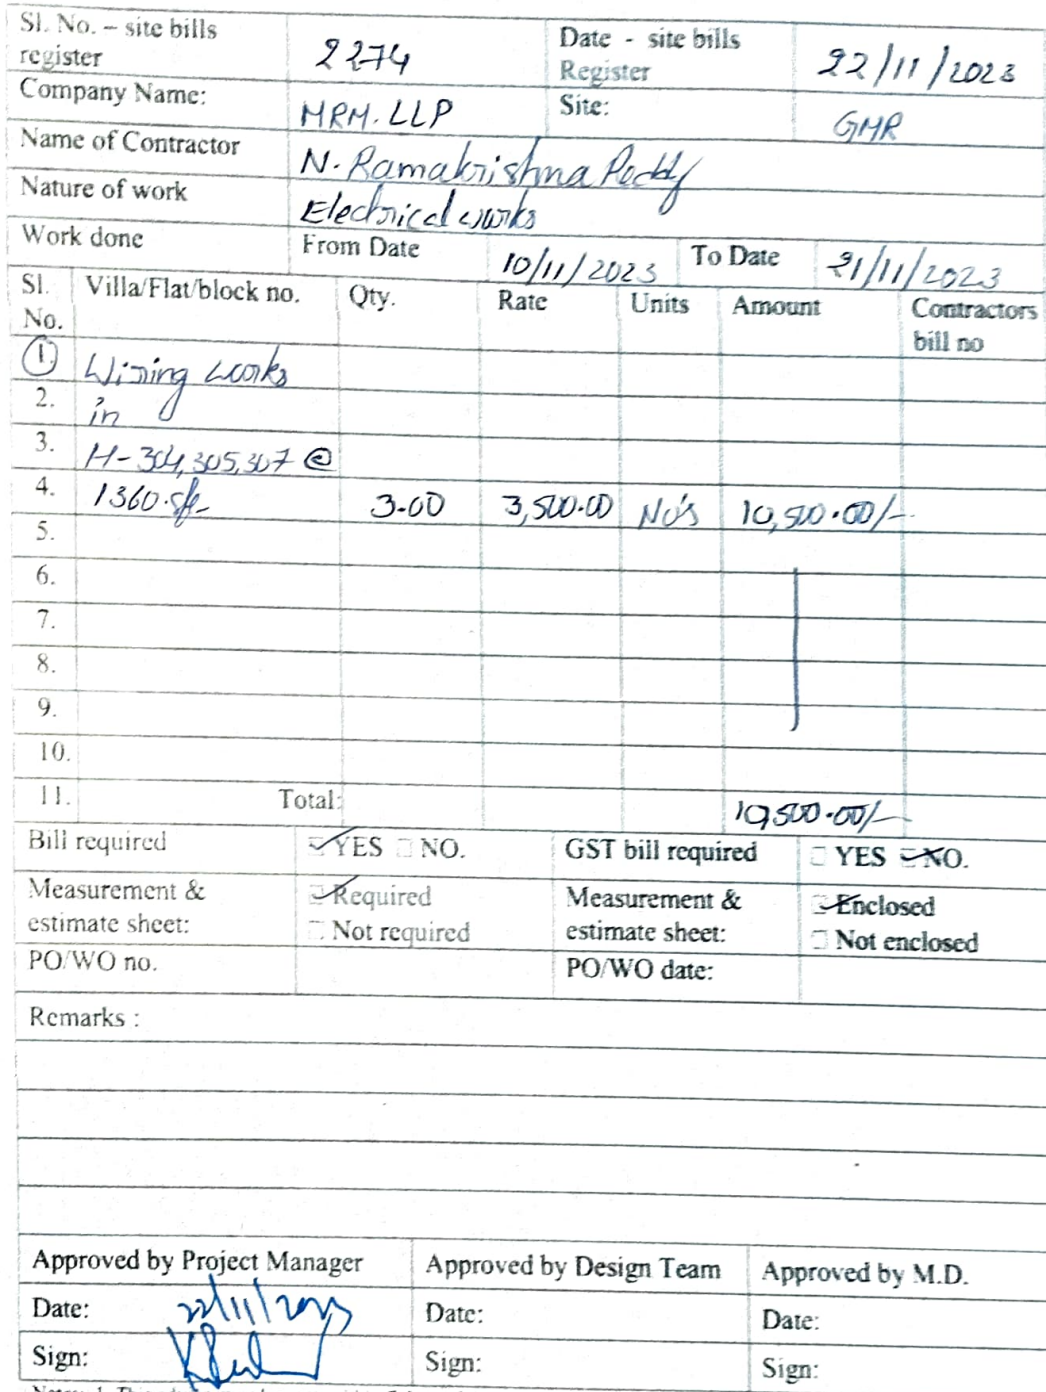 Sl. No. – site bills register 2274 Date - site bills Register 22/11/2023
Company Name: MRM. LLP Site: GMR
Name of Contractor N. Ramakrishna Reddy
Nature of work Electrical works
Work done From Date 10/11/2023 To Date 21/11/2023
Sl. No. Villa/Flat/block no. Qty. Rate Units Amount Contractors bill no
1. Wiring works
2. in
3. H-304,305,307 @
4. 1360.sft 3.00 3,500.00 No's 10,500.00/-
5.
6.
7.
8.
9.
10.
11. Total: 10,500.00/-
Bill required YES NO. GST bill required YES NO.
Measurement & estimate sheet: Required Not required Measurement & estimate sheet: Enclosed Not enclosed
PO/WO no. PO/WO date:
Remarks :
Approved by Project Manager Approved by Design Team Approved by M.D.
Date: 22/11/2023 Date: Date:
Sign: Sign: Sign: